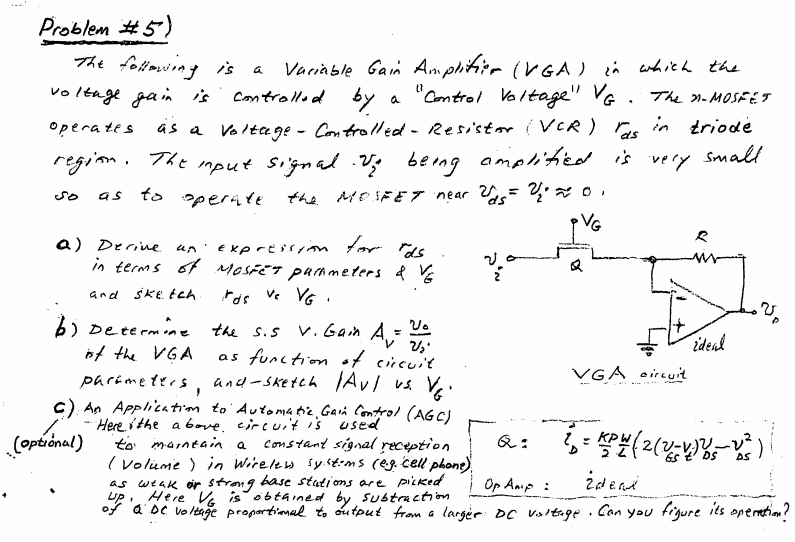 Problem #5)
The following is a Variable Gain Amplifier (VGA) in which the
voltage gain is controlled by a "Control Voltage" V_G. The n-MOSFET
operates as a Voltage-Controlled-Resistor (VCR) r_ds in triode
region. The input signal v_i being amplified is very small
so as to operate the MOSFET near v_ds = v_i ≈ 0.
a) Derive an expression for r_ds
in terms of MOSFET parameters & V_G
and sketch r_ds vs V_G.
b) Determine the s.s V. Gain A_v = v_o/v_i
of the VGA as function of circuit
parameters, and sketch |A_v| vs. V_G.
c) An Application to Automatic Gain Control (AGC)
(optional)
Here the above circuit is used
to maintain a constant signal reception
(Volume) in Wireless systems (eg. cell phone)
as weak or strong base stations are picked
up. Here V_G is obtained by subtraction
of a DC voltage proportional to output from a larger DC voltage. Can you figure its operation?
V_G
v_i
Q
R
-
+
v_o
ideal
VGA circuit
Q: i_D = KP/2 W/L (2(v_GS - V_t) v_DS - v_DS^2)
Op Amp: ideal